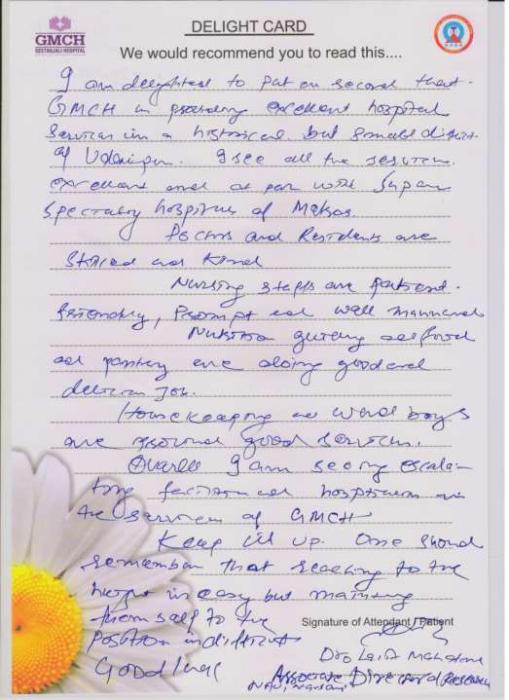 GMCH
GEETANJALI HOSPITAL
DELIGHT CARD
We would recommend you to read this....
I am delighted to put on record that
GMCH is providing excellent hospital
services in a historical but small district
of Udaipur. I see all the services
excellent and at par with Super
Speciality hospitals of Metros.
Doctors and Residents are
Skilled and Kind
Nursing staffs are patient
friendly, Prompt and well mannered
Nutrition seafood
and pantry are doing good and
Job.
Housekeeping and Ward boys
are good services.
Overall I am seeing escala-
ting and hospitality in
the services of GMCH
Keep it up. One should
remember that reaching to the
height is easy but maintaing
themself to the
Position is difficult
Good luck
Signature of Attendant / Patient
Dr. Lalit
Associate Director